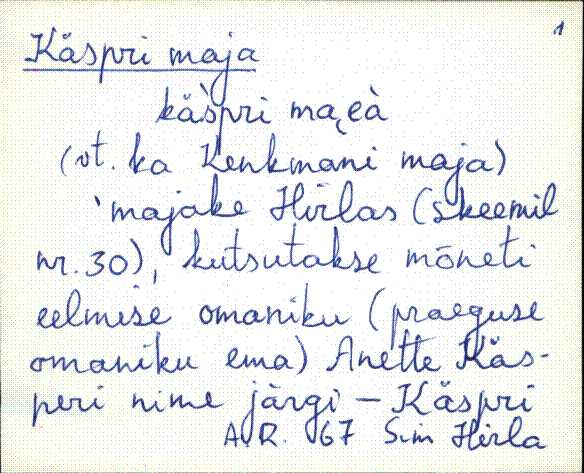 1
Käspri maja
kä̀spri mai̯eà
(vt. ka Kenkmani maja)
'majake Hirlas (skeemil
nr. 30), kutsutakse mõneti
eelmise omaniku (praeguse
omaniku ema) Anette Käs-
peri nime järgi – Käspri
A.R. 67 Sim Hirla